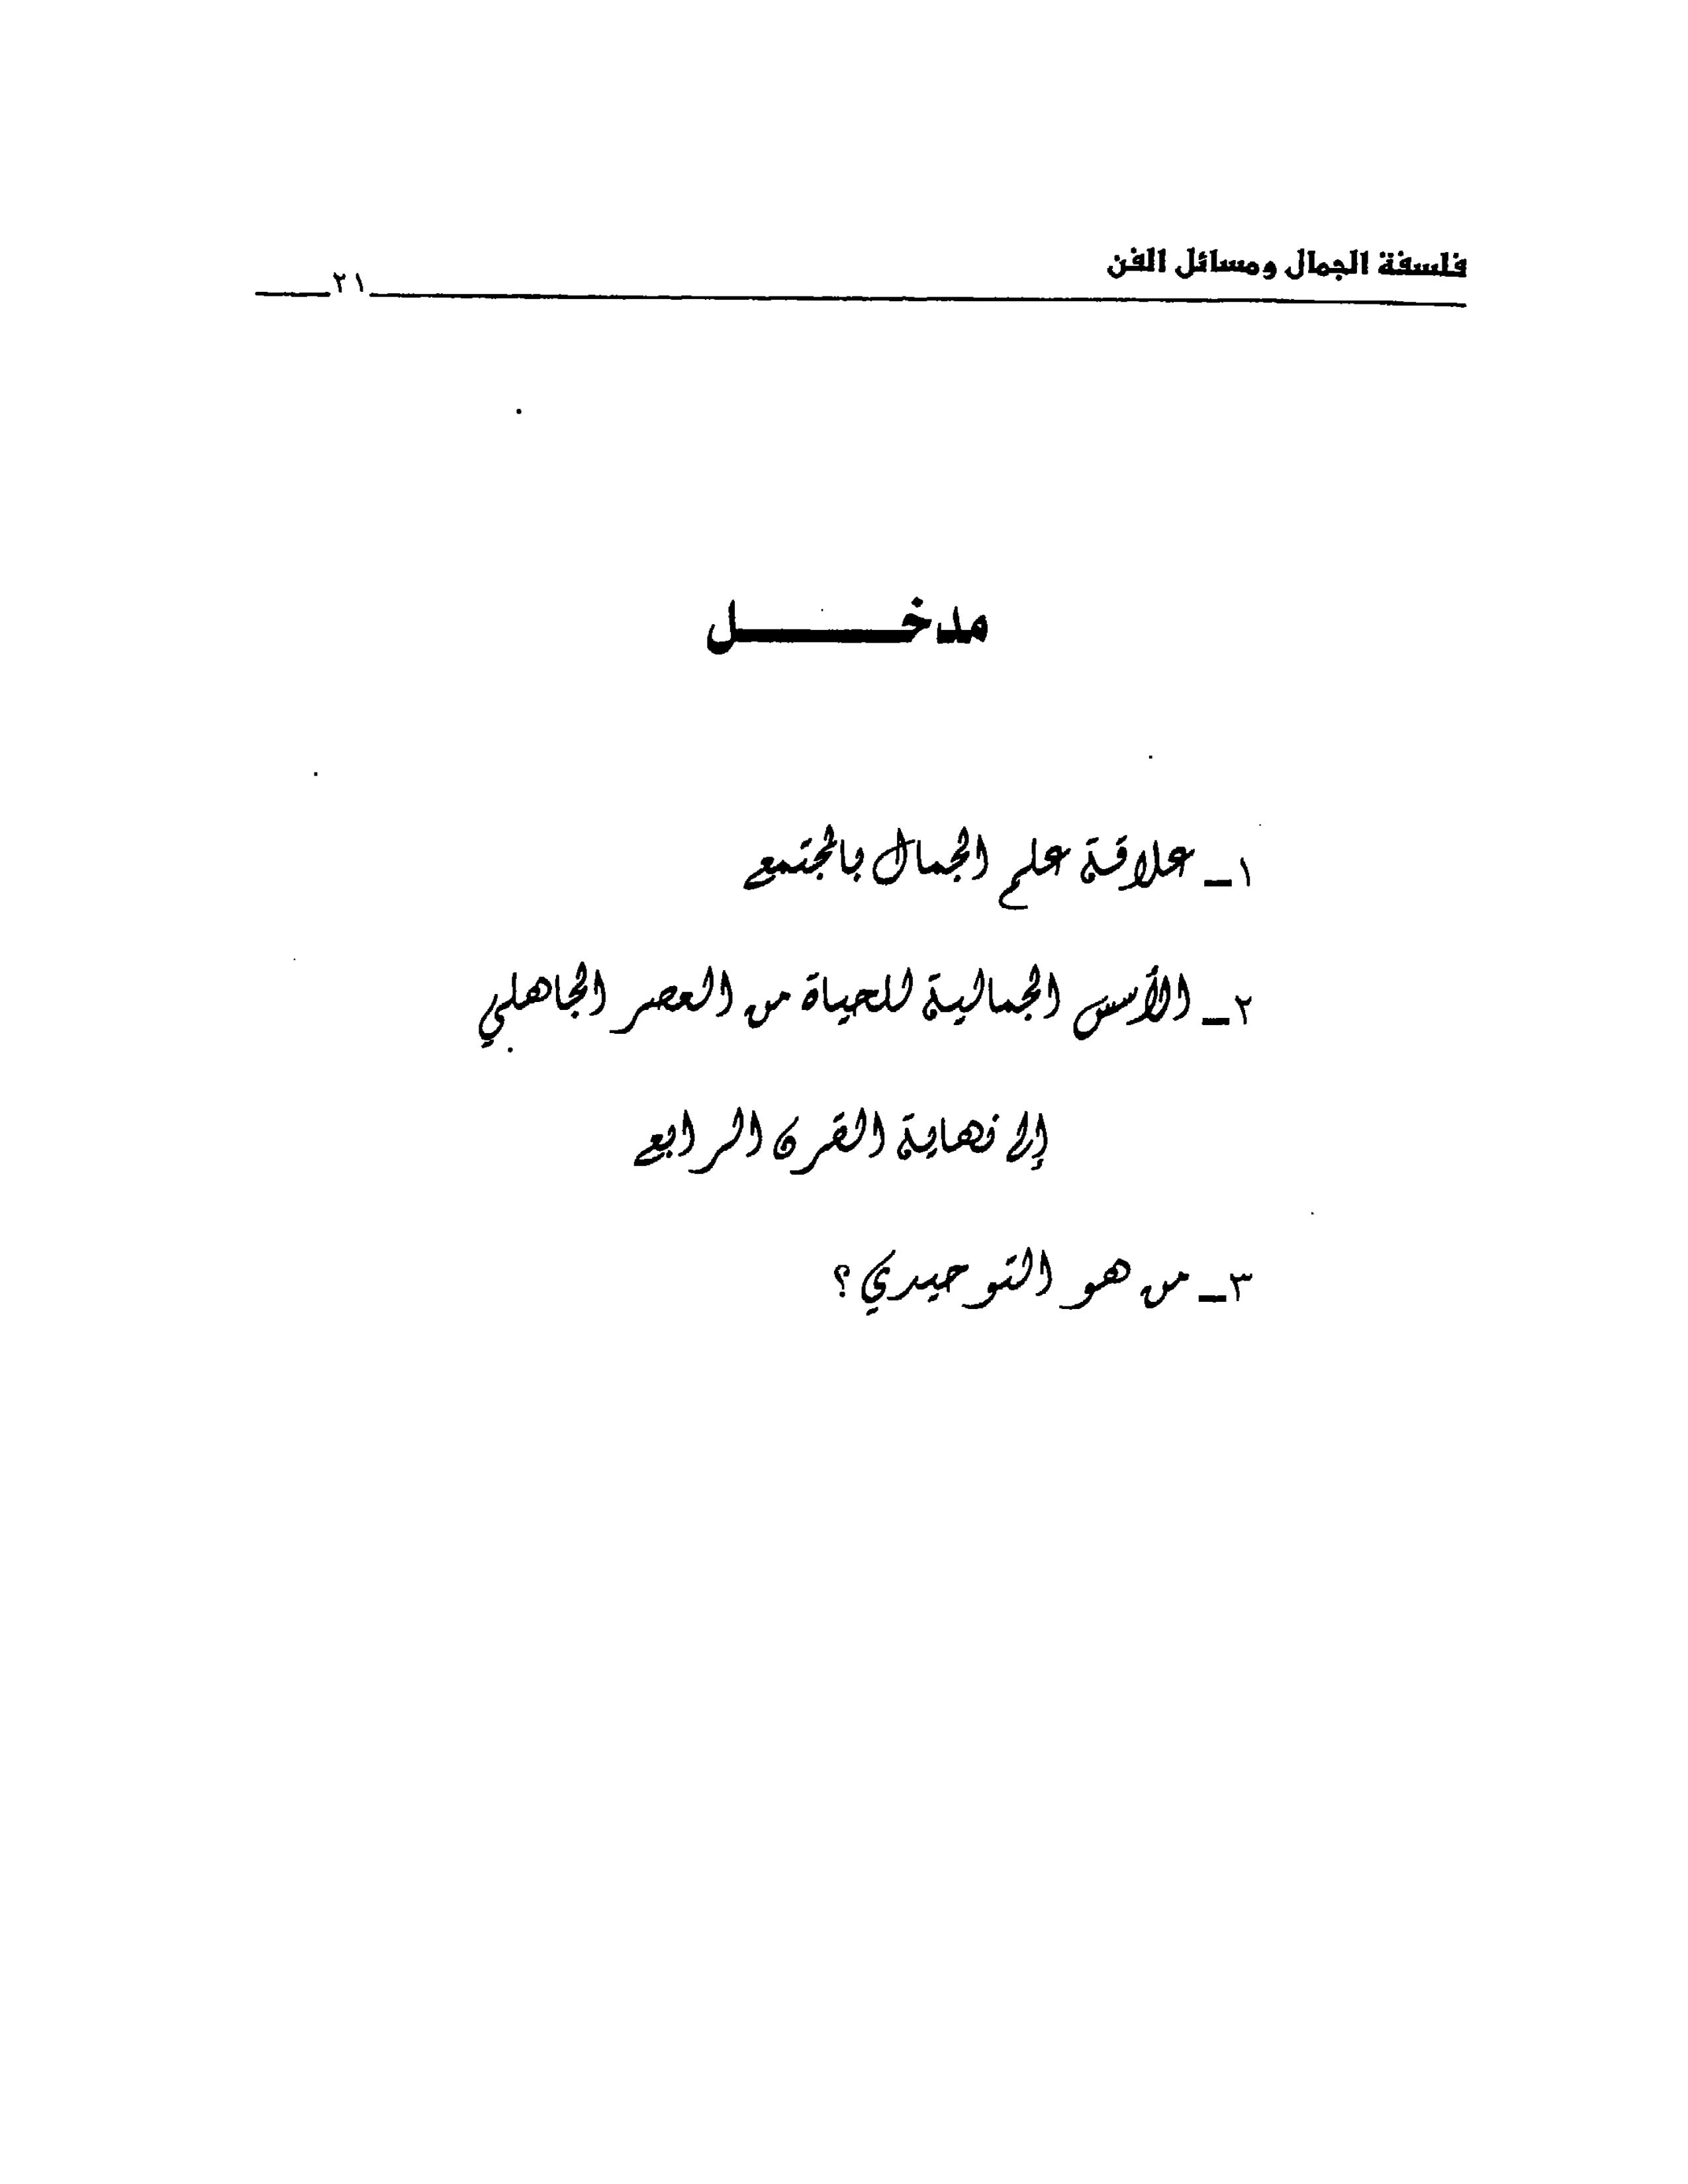 فلسفة الجمال ومسائل الفن
٢١
مدخـــــل
١ــ علاقة علم الجمال بالمجتمع
٢ــ الأسس الجمالية للحياة من العصر الجاهلي
إلى نهاية القرن الرابع
٣ــ من هو التوحيدي؟